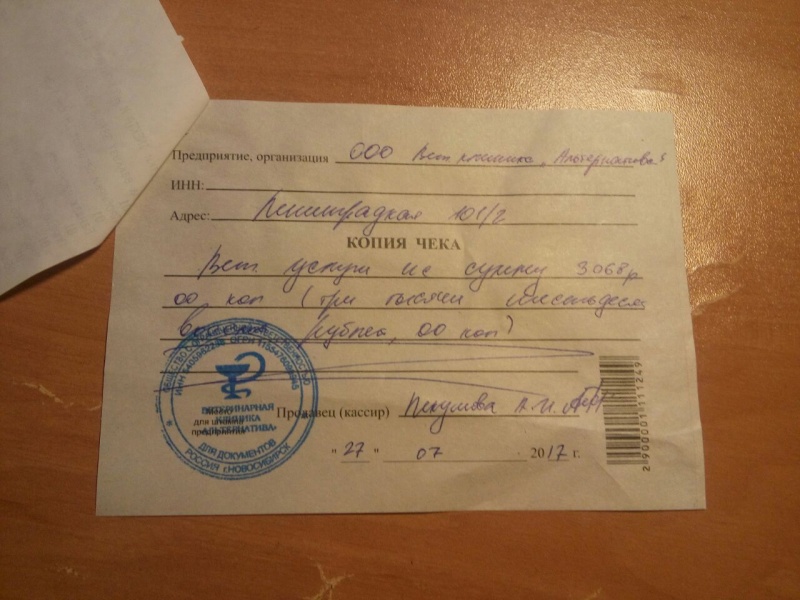 Предприятие, организация ООО Вет клиника „Альтернатива“
ИНН:
Адрес: Ленинградская 101/2
КОПИЯ ЧЕКА
Вет услуги на сумму 3068 р
00 коп (три тысячи шестьдесят
восемь рублей, 00 коп)
ВЕТЕРИНАРНАЯ
КЛИНИКА
«АЛЬТЕРНАТИВА»
ДЛЯ ДОКУМЕНТОВ
РОССИЯ г.НОВОСИБИРСК
Место
для штампа
предприятия
Продавец (кассир) А.И.
"27" 07 2017 г.
2900001111249